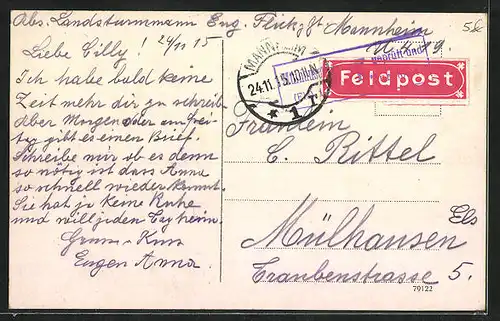 Abs. Landsturmmann Eug. Flück Mannheim
U. 6. 19.
Liebe Cilly! 24/11 15
Ich habe bald keine
Zeit mehr dir zu schreibe
aber Morgen oder am frei
tag gibt es einen Brief.
Schreibe mir ob es denn
so nötig ist dass Anna
so schnell wieder kommt.
Sie hat ja keine Ruhe
und will jeden Tag heim.
Gruss Kuss
Eugen Anna.
MANNHEIM
24.11.15
* 1 r
Geprüft und
Feldpost
Fräulein
C. Rittel
Mülhausen Els
Traubenstrasse 5.
79122